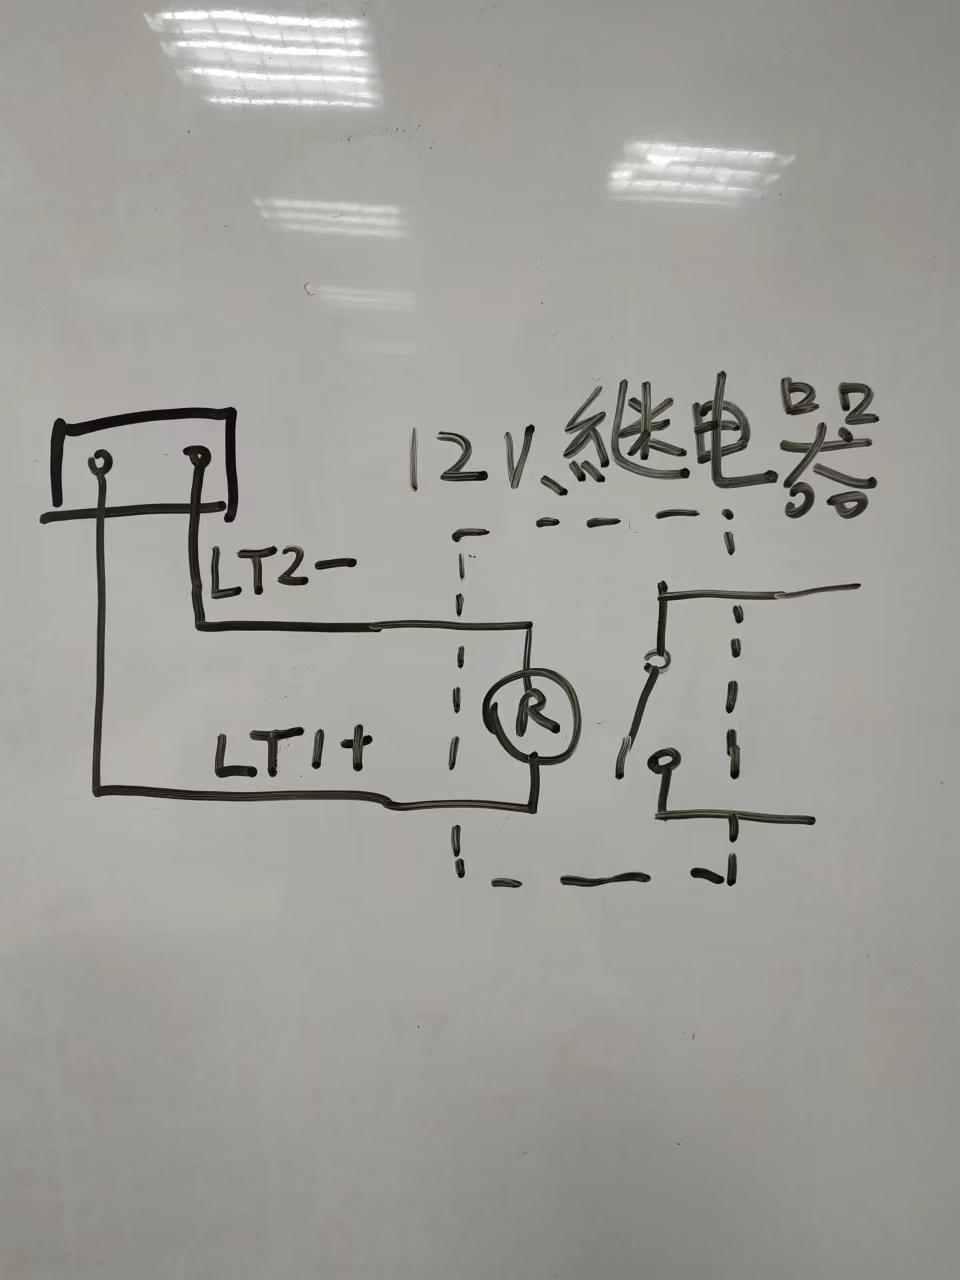 12V 继电器
LT2-
R
LT1+